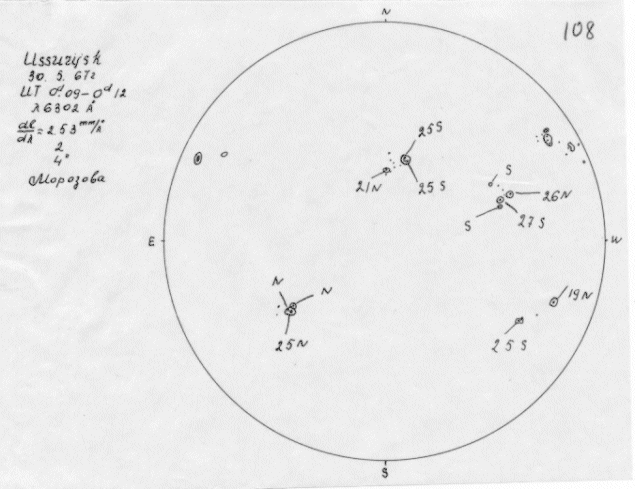 108
Ussurijsk
30. 5. 67г
UT 0ᵈ.09–0ᵈ.12
λ 6302 Å
dl/dλ = 253 mm/Å
2
4"
Морозова
N
25 S
21 N
25 S
S
26 N
27 S
S
E
W
N
N
25 N
19 N
25 S
S